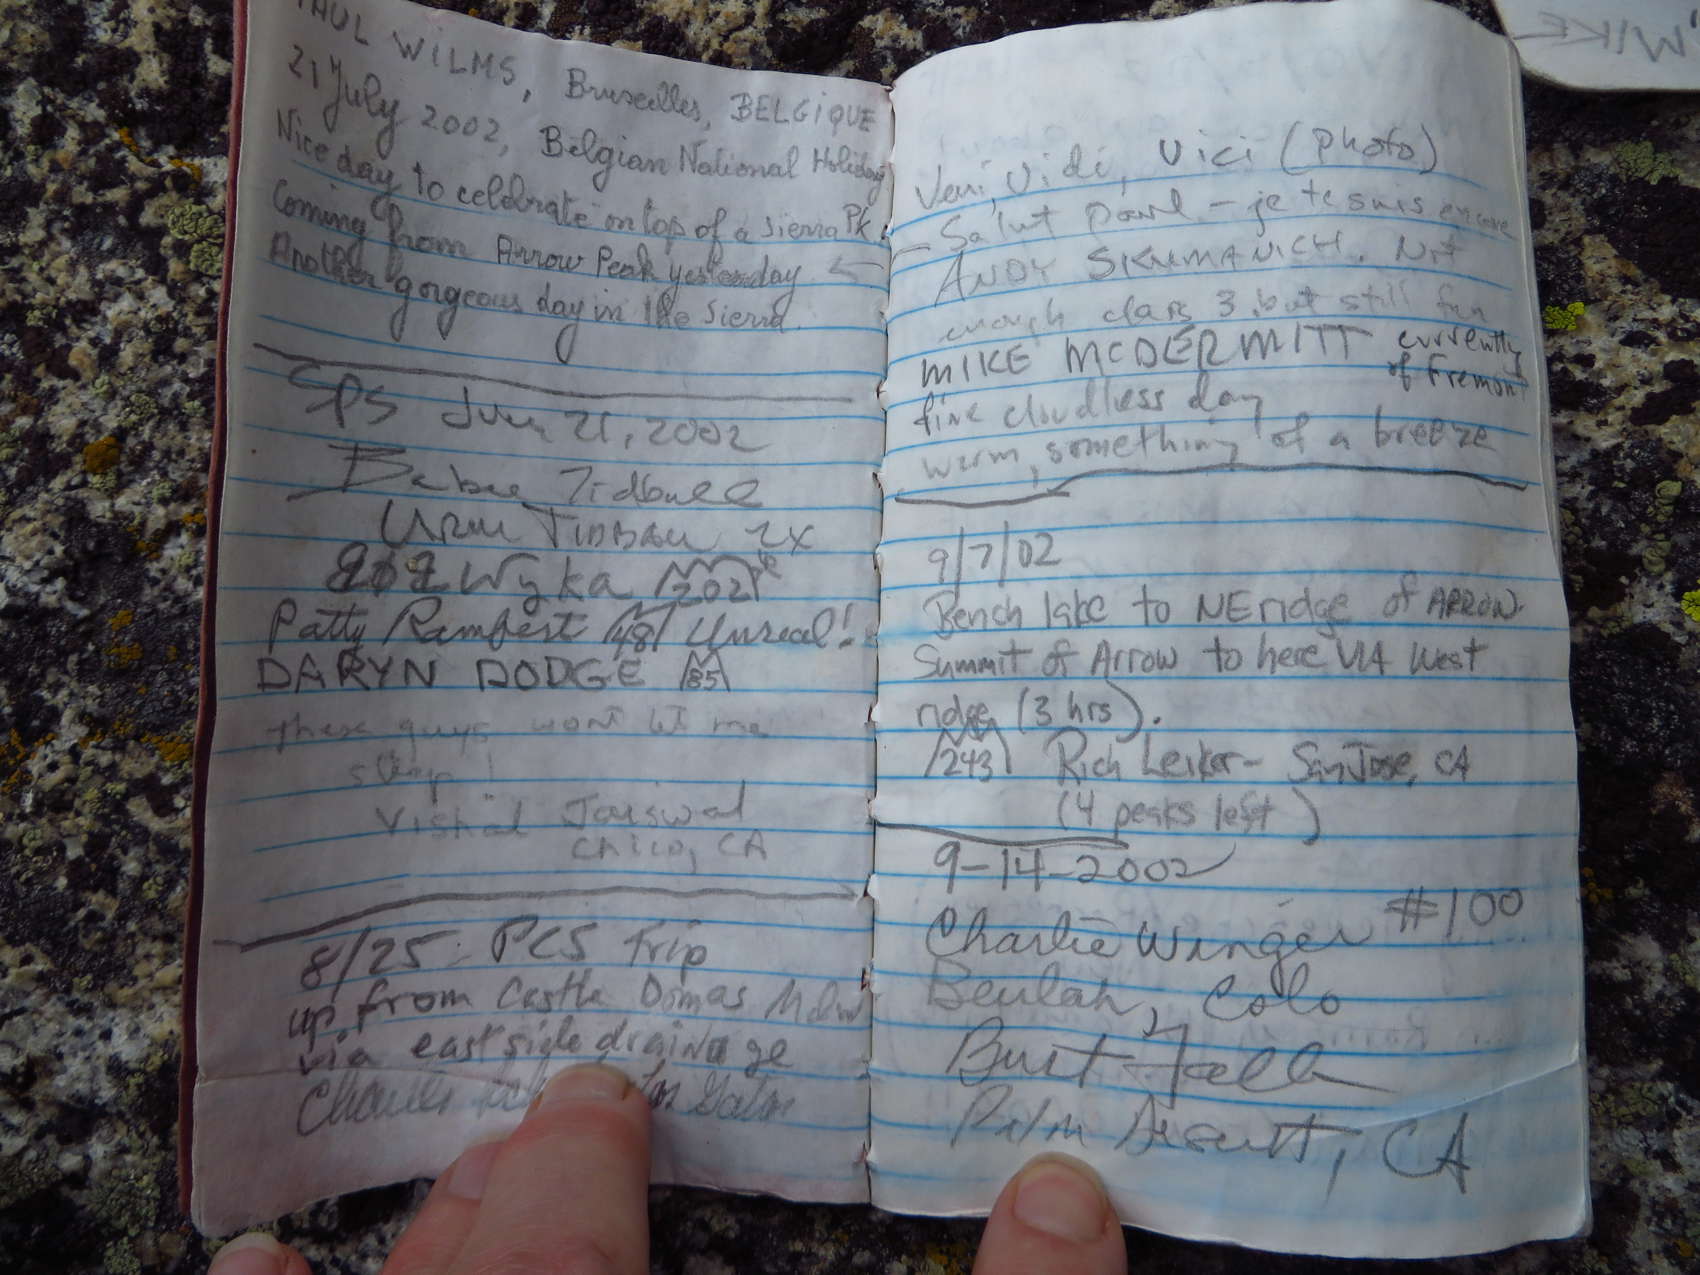 PAUL WILMS, Bruxelles, BELGIQUE
21 July 2002, Belgian National Holiday
Nice day to celebrate on top of a Sierra Pk.
Coming from Arrow Peak yesterday
Another gorgeous day in the Sierra.
SPS 21, 2002
Tidball
2X
Wyka 202
Patty Rambert 48 Unreal!
DARYN DODGE 85
these guys wont let me
sleep!
Vishal Jaiswal
CHICO, CA
8/25 PCS Trip
up from Castle Domes Mdw
via east side drainage
Charles Gatos
Veni, Vidi, Vici (photo)
Salut Paul - je te suis encore
ANDY SKUMANICH. Not
enough class 3, but still fun
MIKE MCDERMITT currently
of Fremont
fine cloudless day
warm, something of a breeze
9/7/02
Bench lake to NE ridge of ARROW.
Summit of Arrow to here VIA West
ridge (3 hrs).
243 Rich Leiker - San Jose, CA
(4 peaks left)
9-14-2002
Charlie Winger #100
Beulah, Colo
Burt Falk
Palm Desert, CA
MIKE